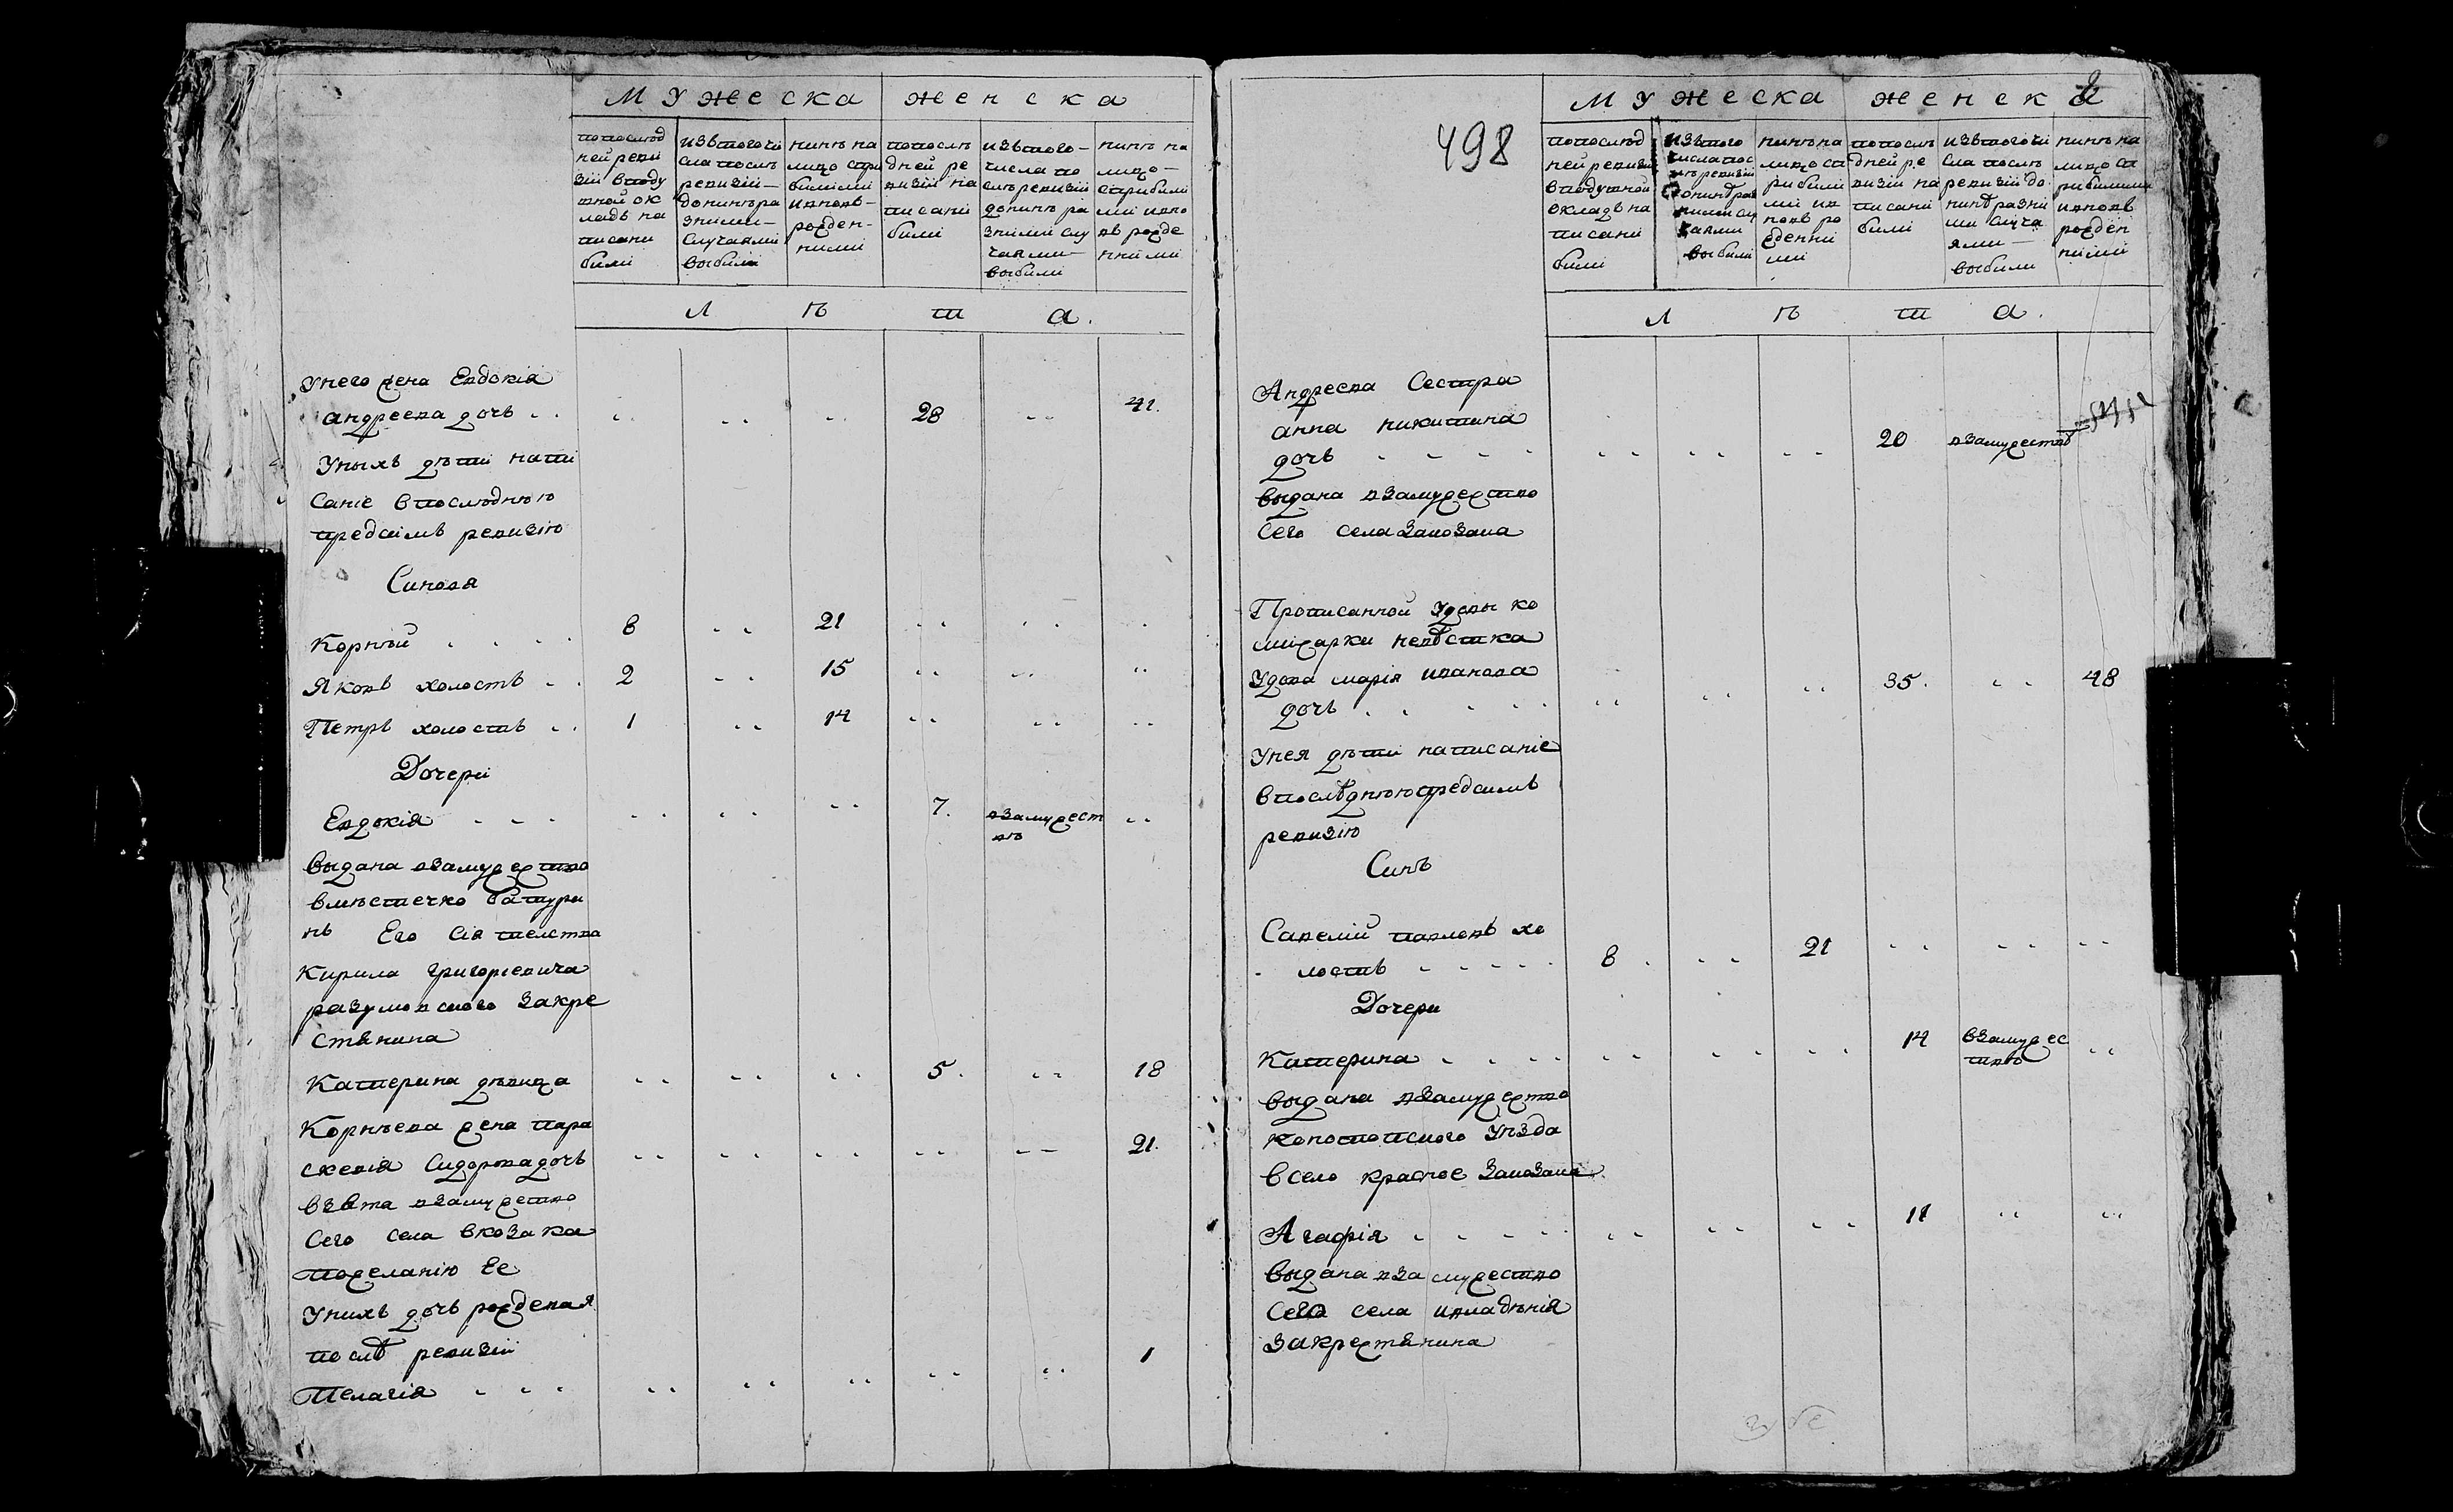 Мужеска женска
попослѣд
ней реви
зіи вподу
шной ок
ладъ на
писани
були
изътогочи
сла послѣ
ревизіи —
донинъра
зними —
случаями
выбили
нинѣ на
лицо спри
билими
ивновъ —
рожден-
ними
попослѣ
дней ре
визіи на
писани
били
изътого —
числа по
слѣ ревизіи
донинъ ра
зними слу
чаями —
выбили
нинѣ на
лицо —
сприбили
ми ивно
въ рожде
нними
Л ѣ т а.
Унего жена Евдокія
андреева дочь . . 28 41.
Унихъ дѣти напи
саніе впослѣднюю
предсимъ ревизію
Синовя
Корнѣй 8 21
Яковъ холостъ 2 15
Петръ холостъ 1 14
Дочери
Евдокія 7. взамужест
вѣ
выдана взамужество
вмѣстечко Батури
нъ Его Сіятелства
Кирила Григоріевича
разумовского Закре
стянина
Катерина дѣвица 5. 18
Корнѣева жена пара
скевія Сидорова дочь 21.
взята взамужество
Сего села вкозака
пожеланію Ее
Унихъ дочь рожденая
послѣ ревизіи
Пелагія 1
498
2
Мужеска женска
попослѣд
ней ревизіи
вподушной
окладъ на
писани
били
изътого
числа пос
лѣ ревизіи
донинѣ раз
ними слу
чаями
выбили
нинѣ на
лицо сп
рибили
ми ив
новъ ро
жденни
ми
попослѣ
дней ре
визіи на
писани
били
изътогочи
сла послѣ
ревизіи до
нинѣ разни
ми случа
ями —
выбили
нинѣ на
лицо сп
рибилими
ивновъ
рожден
ними
Л ѣ т а.
Андреева Сестра
анна никитина
дочь 20 взамужествѣ
выдана взамужество
Сего села закозака
Прописанной Удовы ко
мшарки невѣстка
Удова марія иванова
дочь 35. 48
Унея дѣти написаніе
впослѣднююпредсимъ
ревизію
Синъ
Савелій павловъ хо
лостъ 8 21
Дочери
Катерина 14 взамужес
твѣ
выдана взамужество
конотопского Уѣзда
всело красное закозака.
Агафія 11
выдана взамужество
Сего села ивладѣнія
закрестянина